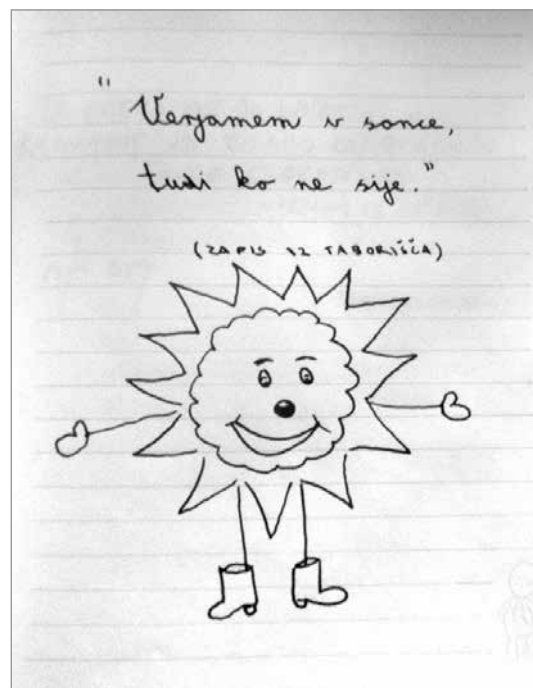 "Verjamem v sonce,
tudi ko ne sije."
(ZAPIS IZ TABORIŠČA)